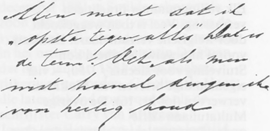 Men meent dat ik
"opsta tegen alles" Dat is
de term. Och, als men
wist hoeveel dingen ik
voor heilig houd